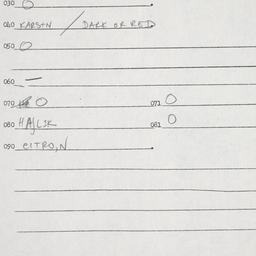 030 O
040 KARSTN / DARK OR RED
050 O
060 –
070 O 071 O
080 HAJLIK 081 O
090 CITRO,N